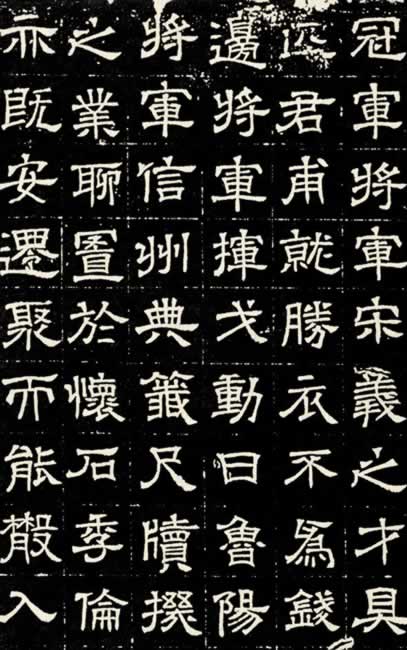 冠軍將軍宋義之才具
匹君甫就勝衣不為錢
邊將軍揮戈動日魯陽
將軍信州典籤尺牘撰
之業聊置於懷石季倫
亦既安還聚而能散入